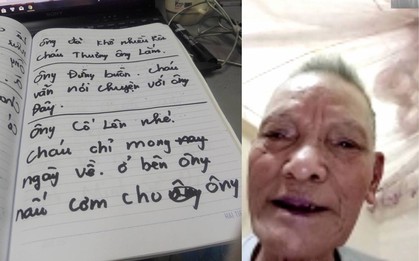 ông đã khổ nhiều rồi
cháu Thương ông Lắm.
ông Đừng buồn. cháu
vẫn nói chuyện với ông
Đây.
ông Cố Lên nhé.
cháu chỉ mong
ngày về. ở bên ông
nấu cơm cho ông